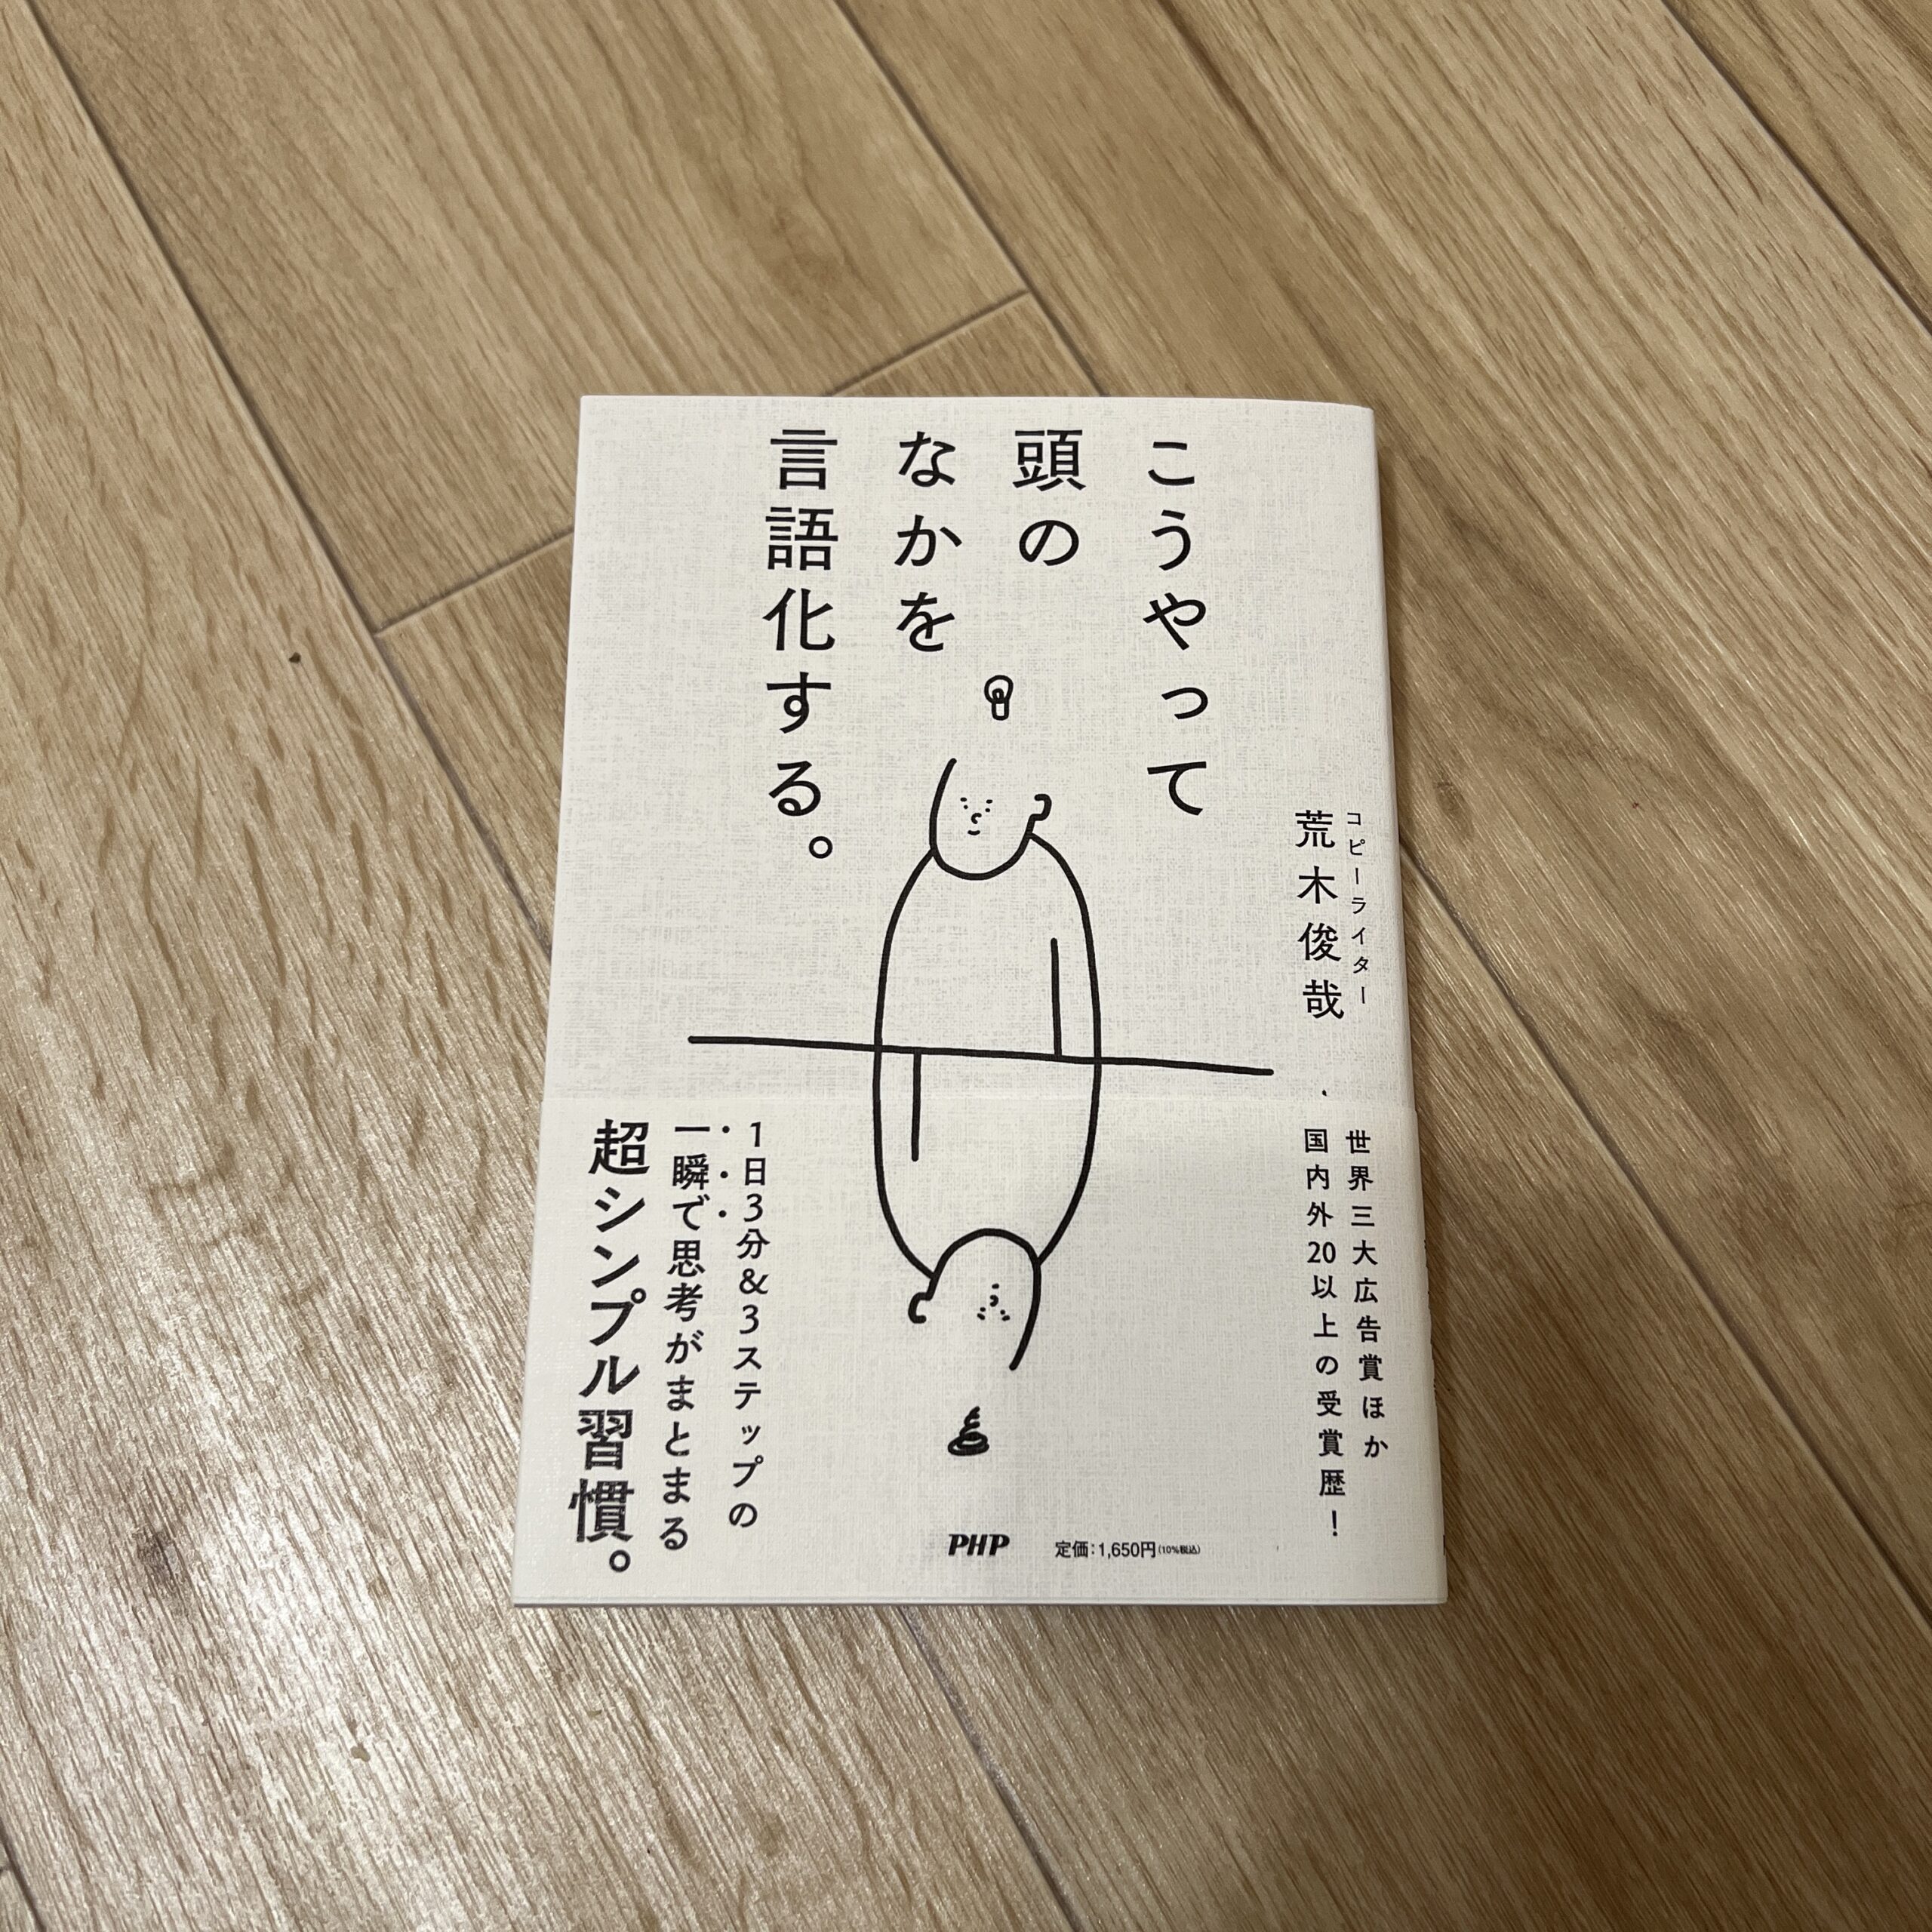 こうやって
頭の
なかを
言語化する。
コピーライター
荒木俊哉
世界三大広告賞ほか
国内外20以上の受賞歴！
1日3分&3ステップの
一瞬で思考がまとまる
超シンプル習慣。
PHP
定価：1,650円(10%税込)